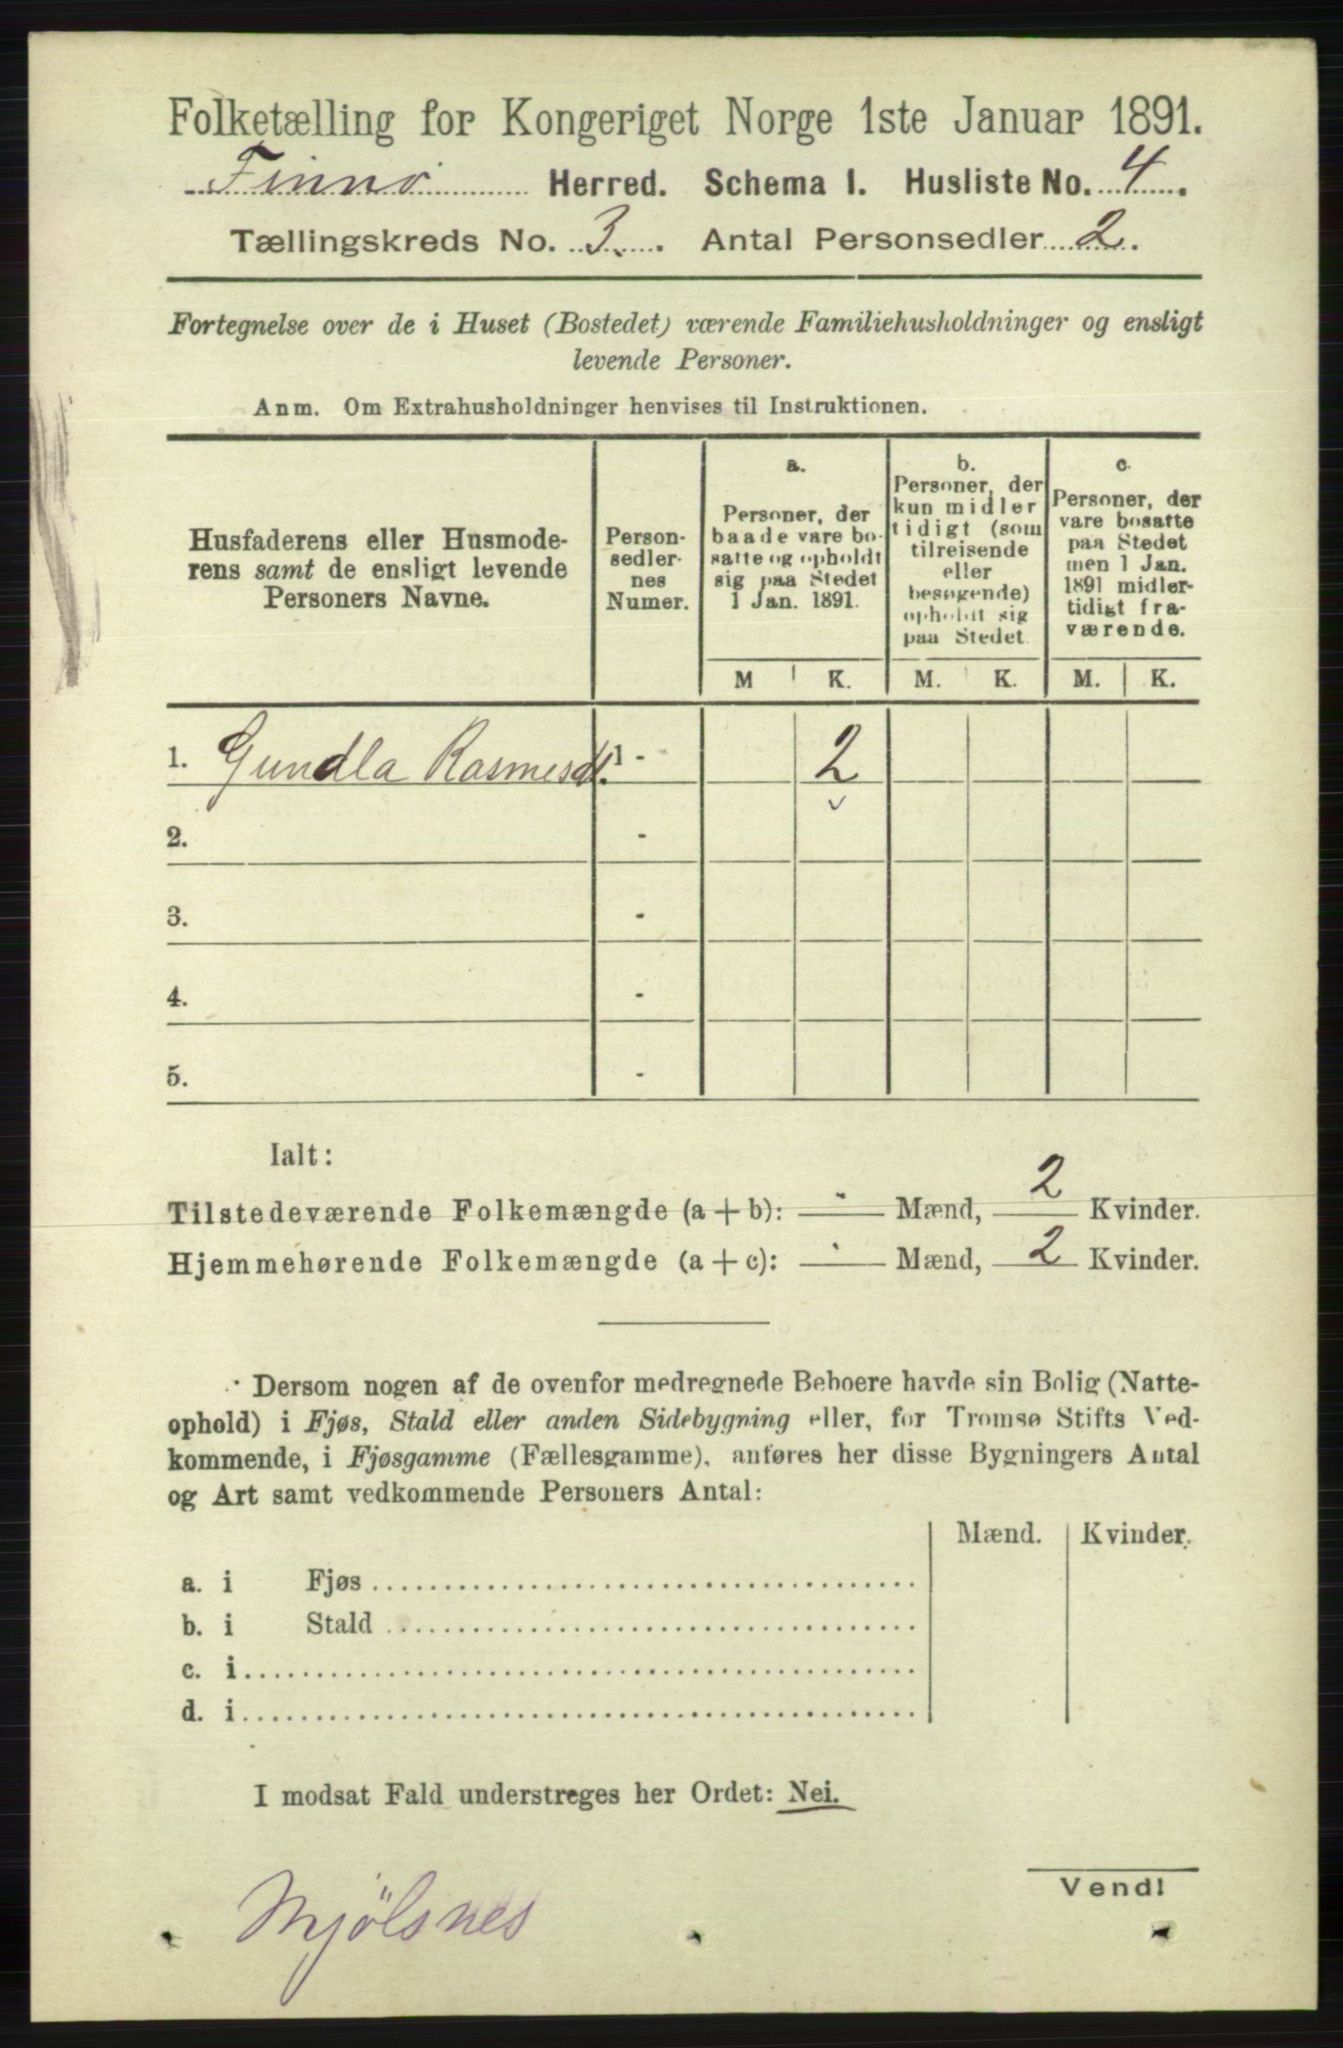 Folketælling for Kongeriget Norge 1ste Januar 1891.
Finnö Herred. Schema I. Husliste No. 4.
Tællingskreds No. 3. Antal Personsedler 2.
Fortegnelse over de i Huset (Bostedet) værende Familiehusholdninger og ensligt
levende Personer.
Anm. Om Extrahusholdninger henvises til Instruktionen.
Husfaderens eller Husmode-
rens samt de ensligt levende
Personers Navne.
Person-
sedler-
nes
Numer.
a.
Personer, der
baade vare bo-
satte og opholdt
sig paa Stedet
1 Jan. 1891.
b.
Personer, der
kun midler
tidigt (som
tilreisende
eller
besøgende)
opholdt sig
paa Stedet
c.
Personer, der
vare bosatte
paa Stedet
men 1 Jan.
1891 midler-
tidigt fra-
værende.
M K. M. K. M. K.
1. Gundla Rasmesd. 1 - 2
2. -
3. -
4. -
5. -
Ialt:
Tilstedeværende Folkemængde (a + b): - Mænd, 2 Kvinder.
Hjemmehørende Folkemængde (a + c): - Mænd, 2 Kvinder.
Dersom nogen af de ovenfor medregnede Beboere havde sin Bolig (Natte-
ophold) i Fjøs, Stald eller anden Sidebygning eller, for Tromsø Stifts Ved-
kommende, i Fjøsgamme (Fællesgamme), anføres her disse Bygningers Antal
og Art samt vedkommende Personers Antal:
Mænd. Kvinder.
a. i Fjøs
b. i Stald
c. i
d. i
I modsat Fald understreges her Ordet: Nei.
Vend!
Mjölsnes